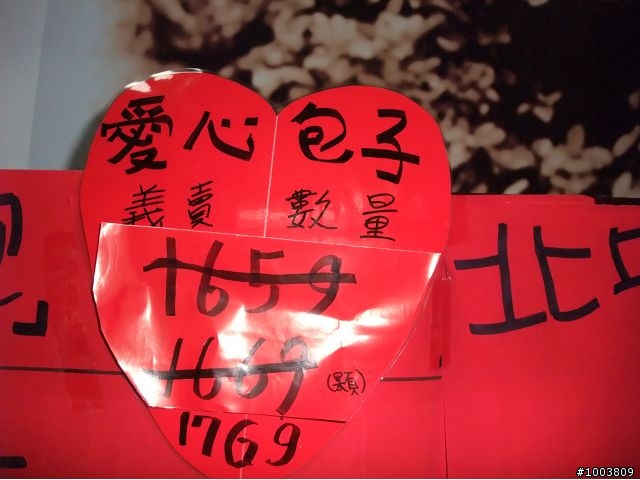 愛心 包子
義賣 數量
1659
1669 (顆)
1769
北
#1003809